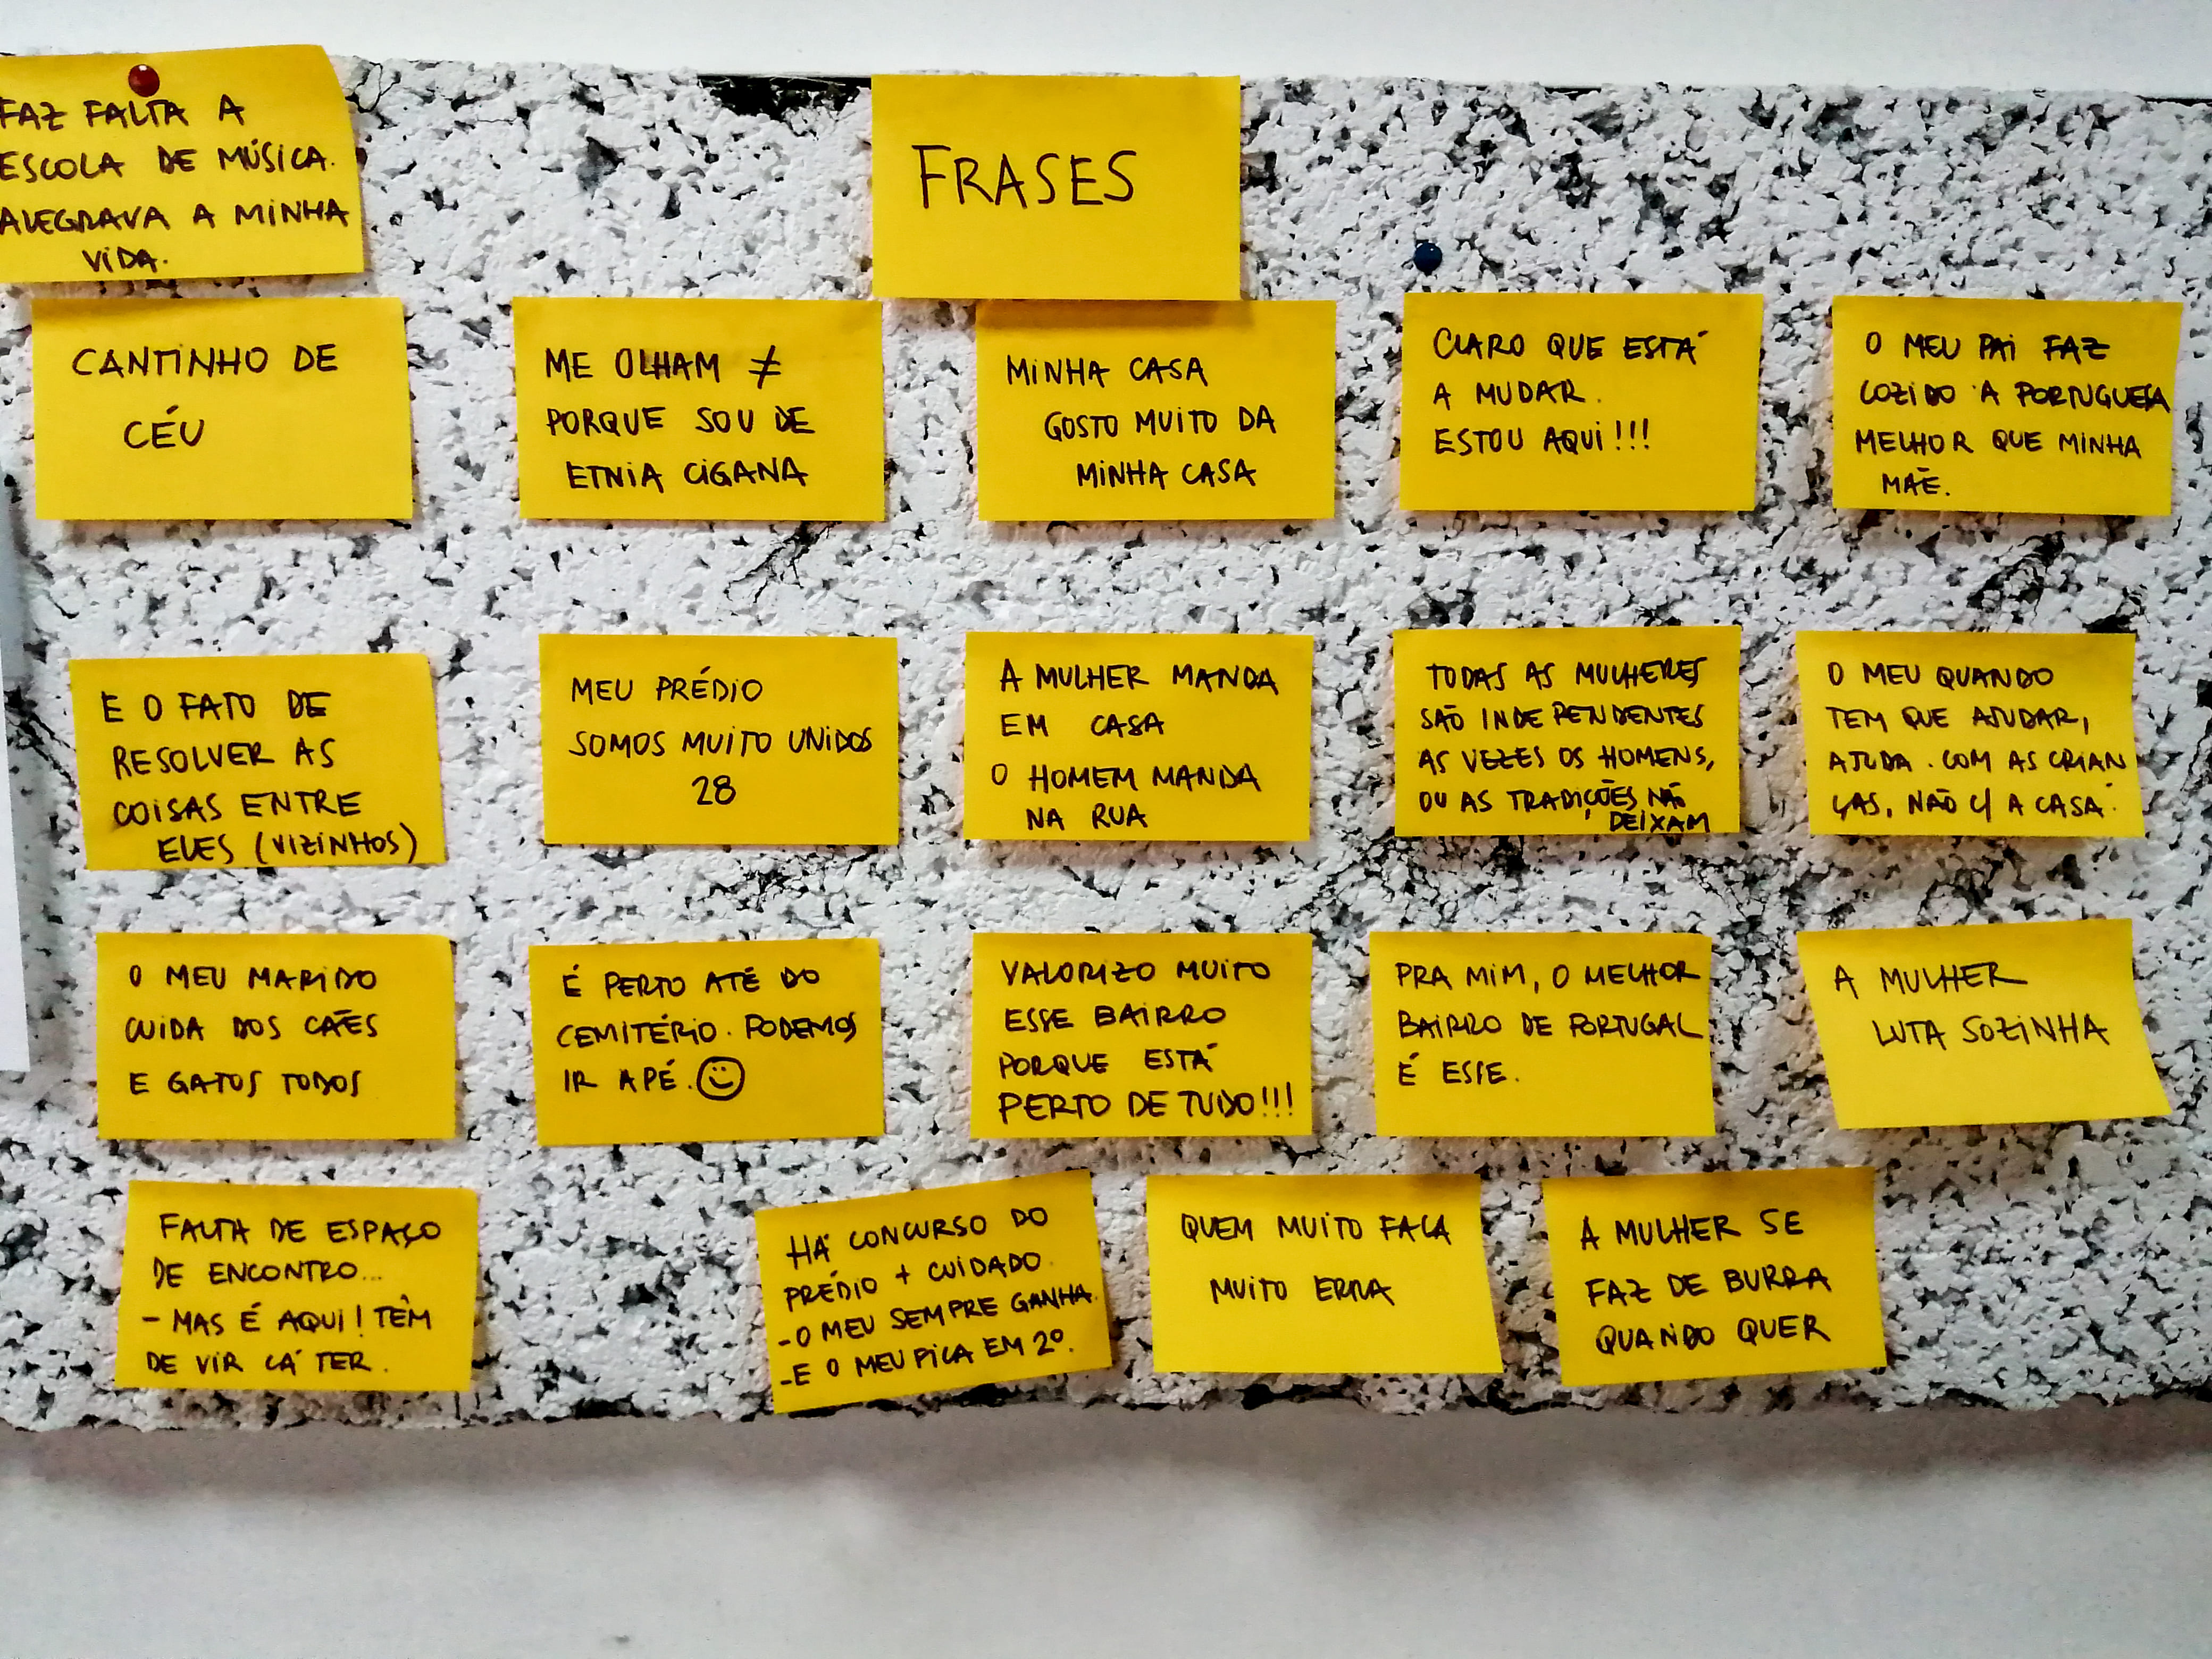 FAZ FALTA A
ESCOLA DE MÚSICA.
ALEGRAVA A MINHA
VIDA.
FRASES
CANTINHO DE
CÉU
ME OLHAM ≠
PORQUE SOU DE
ETNIA CIGANA
MINHA CASA
GOSTO MUITO DA
MINHA CASA
CLARO QUE ESTÁ
A MUDAR.
ESTOU AQUI!!!
O MEU PAI FAZ
COZIDO À PORTUGUESA
MELHOR QUE MINHA
MÃE.
E O FATO DE
RESOLVER AS
COISAS ENTRE
ELES (VIZINHOS)
MEU PRÉDIO
SOMOS MUITO UNIDOS
28
A MULHER MANDA
EM CASA
O HOMEM MANDA
NA RUA
TODAS AS MULHERES
SÃO INDEPENDENTES
AS VEZES OS HOMENS,
OU AS TRADIÇÕES, NÃO
DEIXAM
O MEU QUANDO
TEM QUE AJUDAR,
AJUDA. COM AS CRIAN
ÇAS, NÃO C/ A CASA.
O MEU MARIDO
CUIDA DOS CÃES
E GATOS TODOS
É PERTO ATÉ DO
CEMITÉRIO. PODEMOS
IR A PÉ. ☺
VALORIZO MUITO
ESSE BAIRRO
PORQUE ESTÁ
PERTO DE TUDO!!!
PRA MIM, O MELHOR
BAIRRO DE PORTUGAL
É ESSE.
A MULHER
LUTA SOZINHA
FALTA DE ESPAÇO
DE ENCONTRO...
- MAS É AQUI! TÊM
DE VIR CÁ TER.
HÁ CONCURSO DO
PRÉDIO + CUIDADO.
- O MEU SEMPRE GANHA.
- E O MEU FICA EM 2º.
QUEM MUITO FALA
MUITO ERRA
A MULHER SE
FAZ DE BURRA
QUANDO QUER